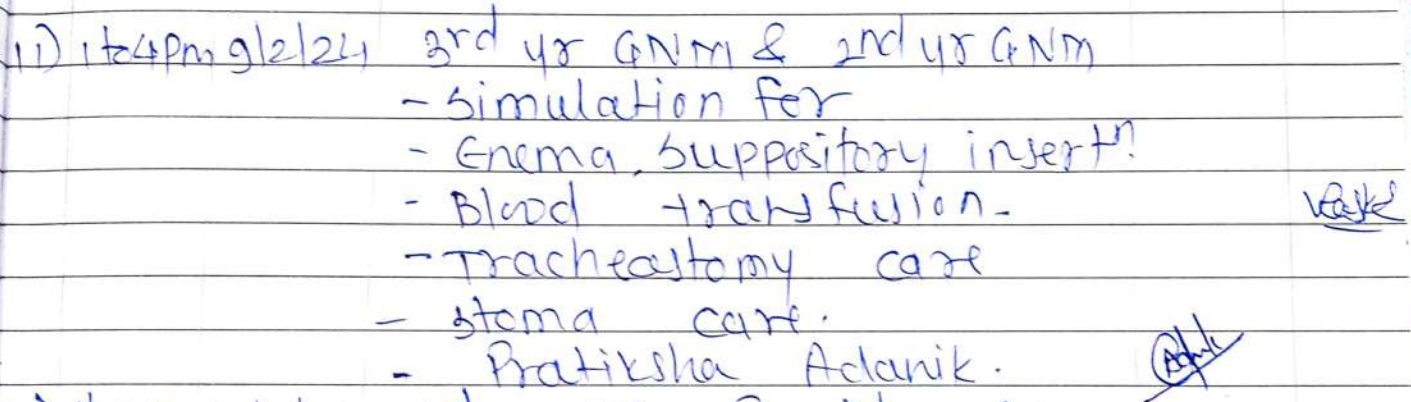 11) 1to4pm 9/2/24 3rd yr GNM & 2nd yr GNM
- simulation for
- Enema, suppository insertn.
- Blood transfusion-
- Tracheostomy care
- stoma care.
- Pratiksha Adanik.